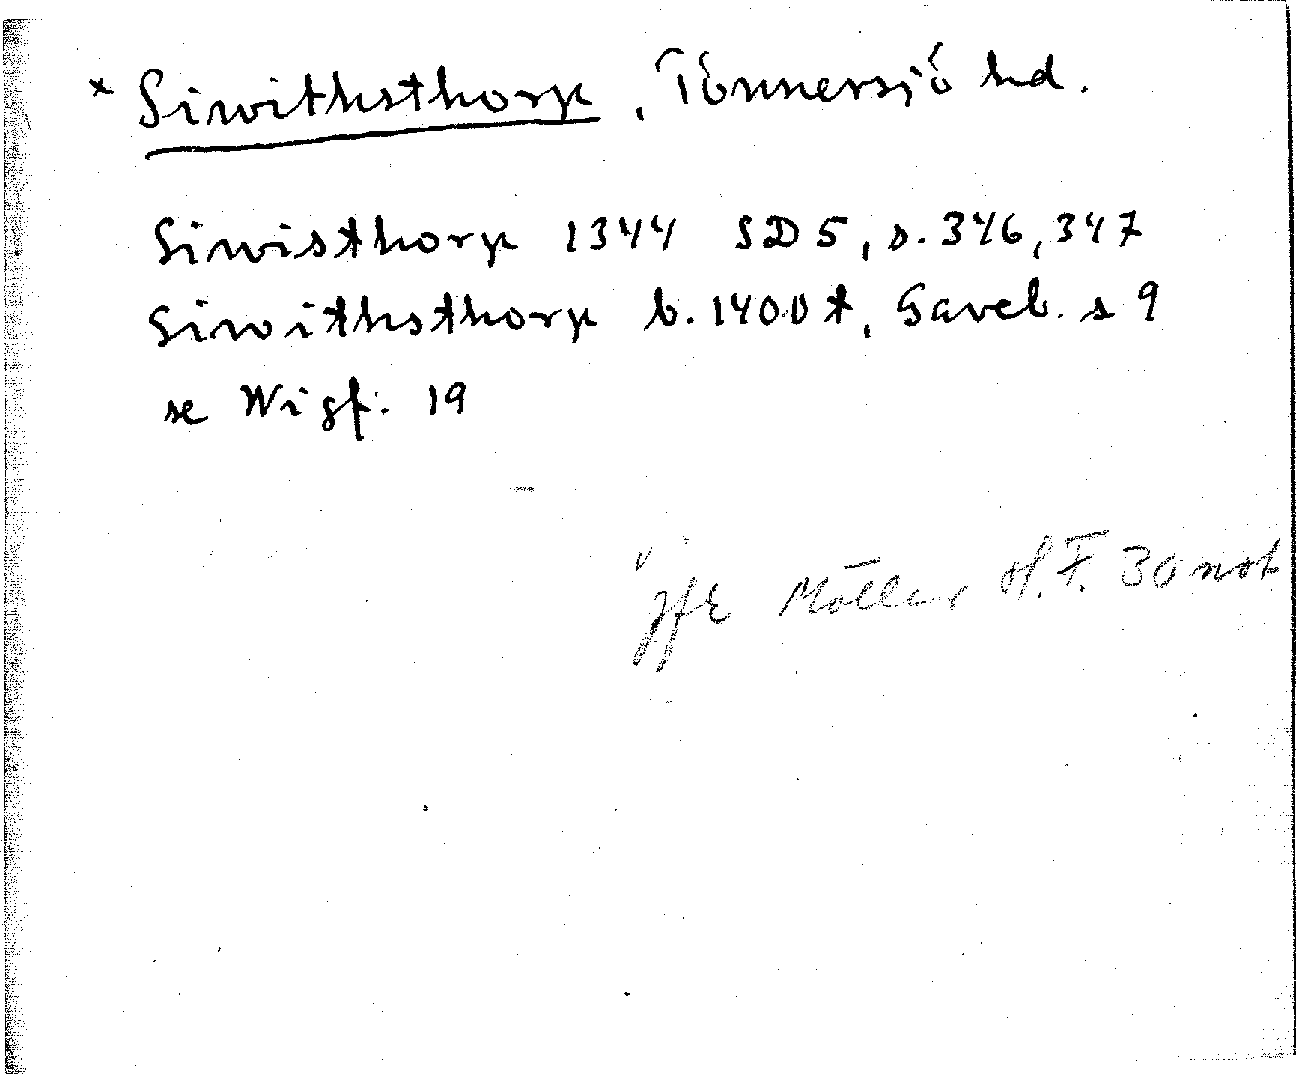 * Siwithsthorp, Tönnersjö hd.
Siwisthorp 1344 SD 5, s. 346, 347
Siwithsthorp b. 1400 t, Gaveb. s 9
se Wigf. 19
jfr Möller H.F. 30 not